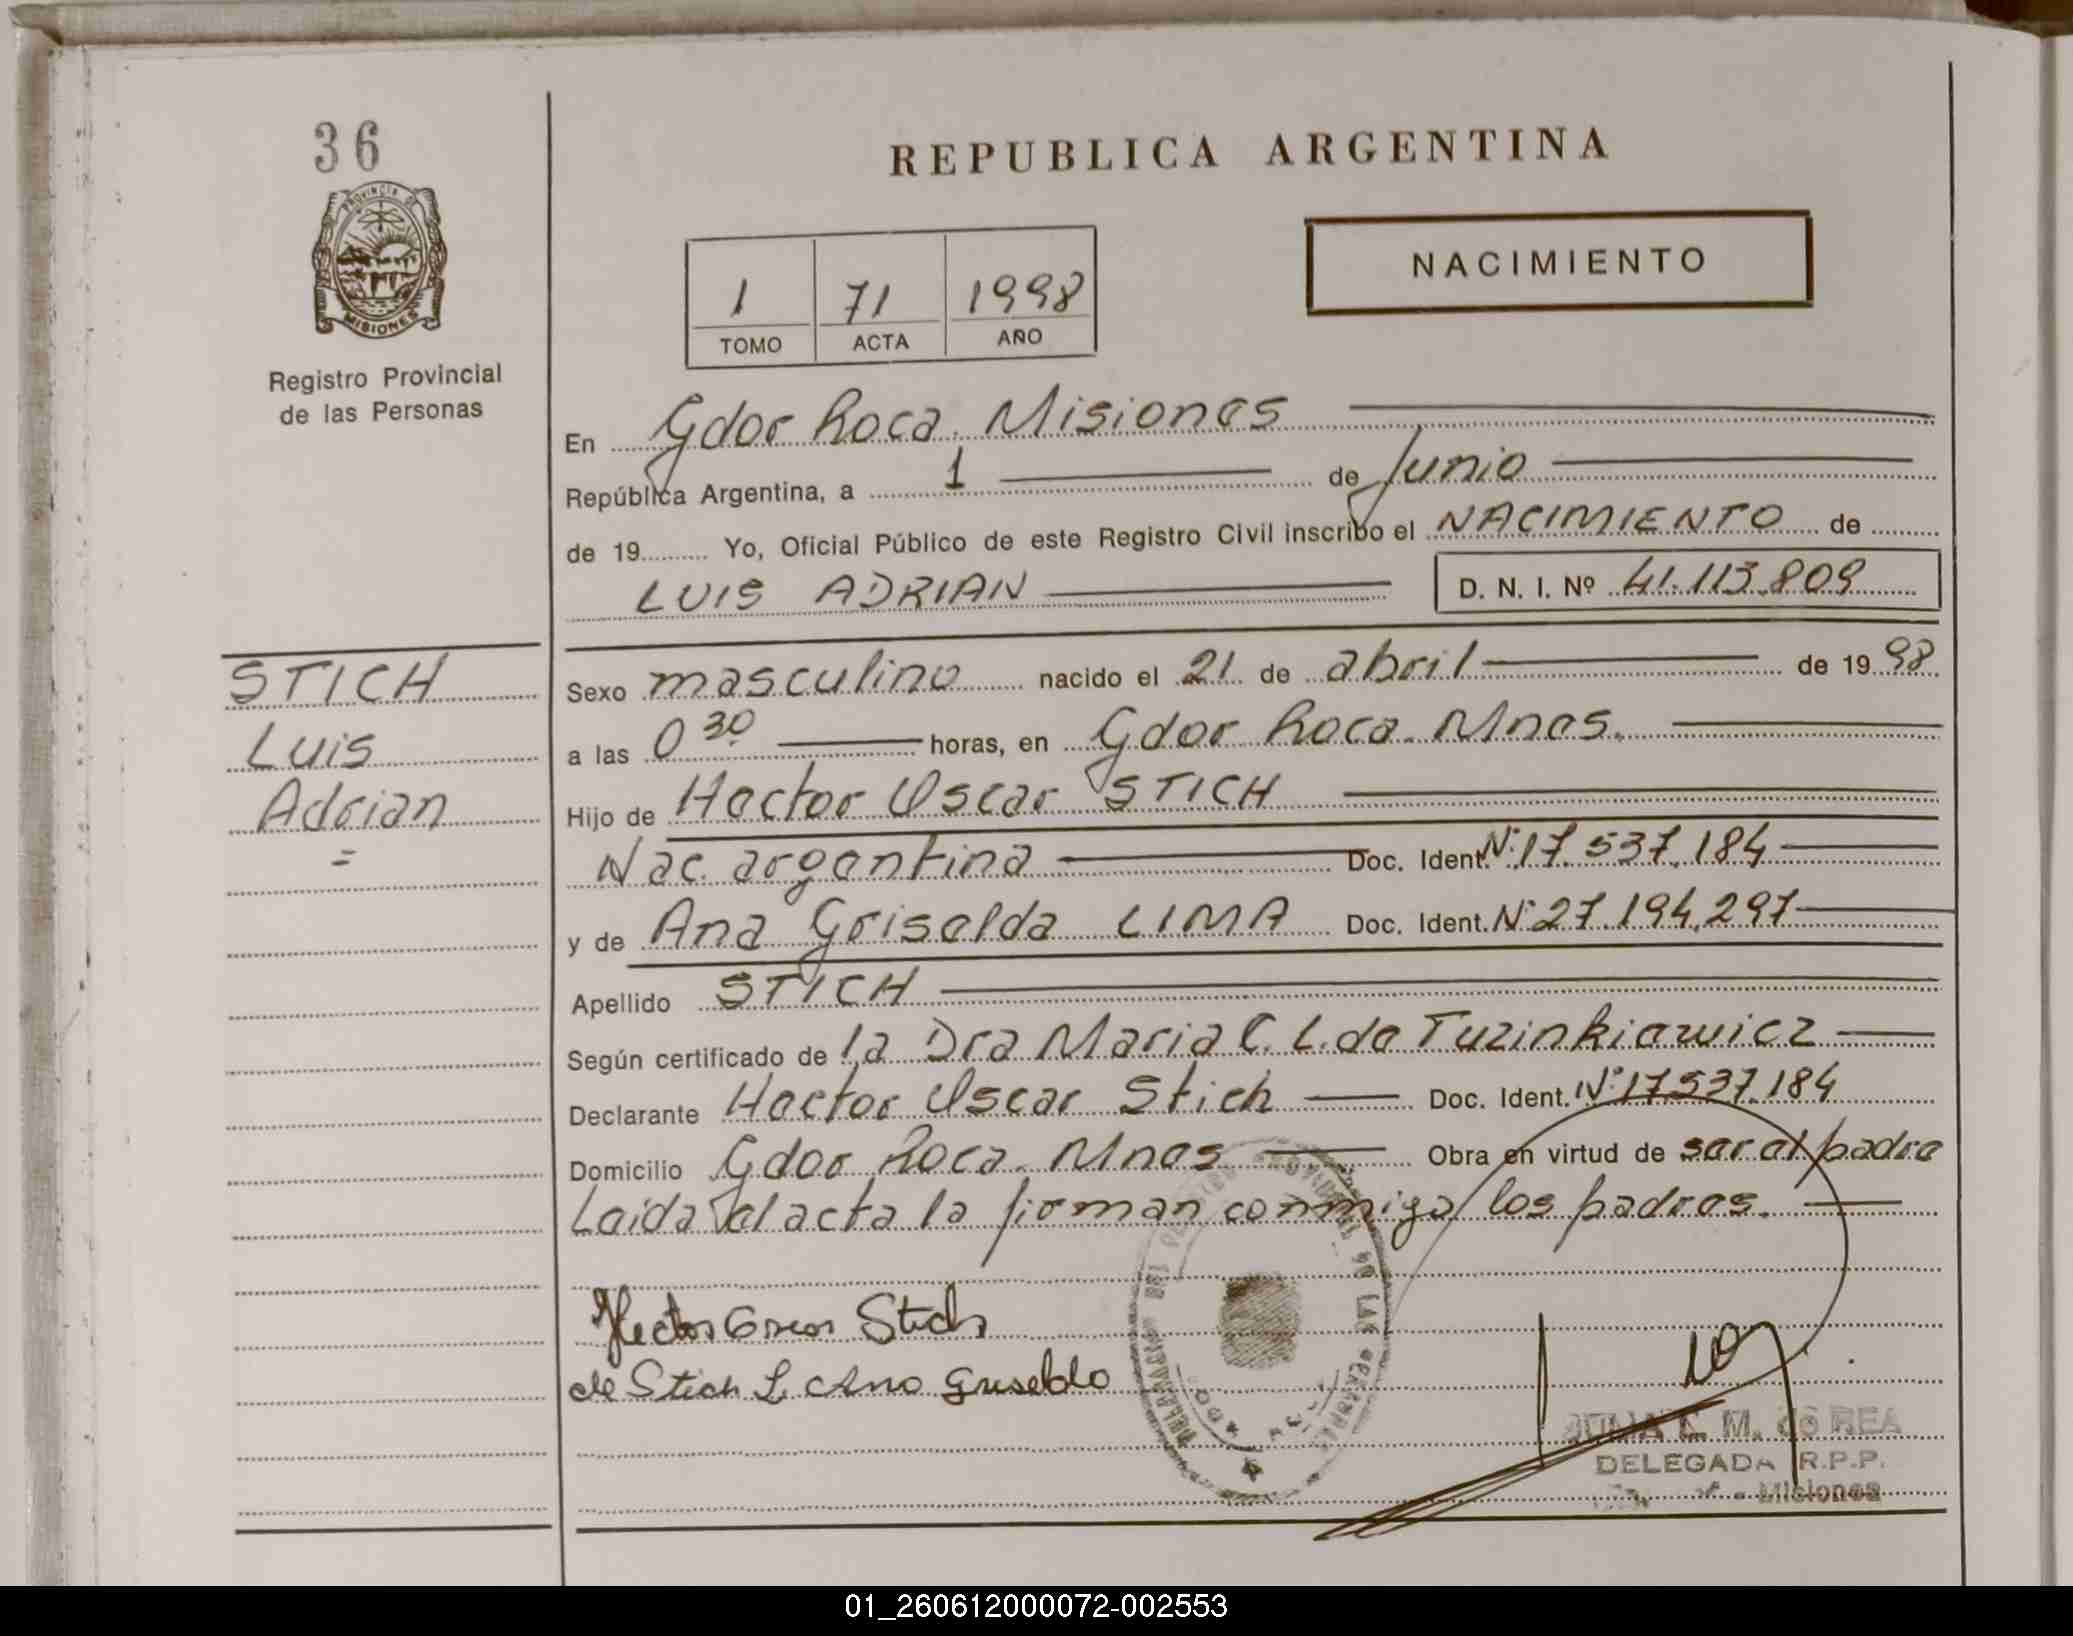 36
PROVINCIA DE
MISIONES
Registro Provincial
de las Personas
REPUBLICA ARGENTINA
NACIMIENTO
1 71 1998
TOMO ACTA AÑO
En Gdor Roca. Misiones
República Argentina, a 1 de Junio
de 19 Yo, Oficial Público de este Registro Civil inscribo el NACIMIENTO de
LUIS ADRIAN D. N. I. Nº 41.113.809
STICH
Luis
Adrian
=
Sexo masculino nacido el 21 de abril de 1998
a las 0 30 horas, en Gdor Roca. Mnes.
Hijo de Hector Oscar STICH
Nac. argentina Doc. Ident. Nº 17.537.184
y de Ana Griselda LIMA Doc. Ident. Nº 27.194.297
Apellido STICH
Según certificado de la Dra Maria C. L. de Tuzinkiewicz
Declarante Hector Oscar Stich Doc. Ident. Nº 17537.184
Domicilio Gdor Roca. Mnes Obra en virtud de ser el padre
Leida el acta la firman conmigo los padres.
Hector Oscar Stich
de Stich L. Ana Griselda
M. de REA
DELEGADA R.P.P.
Misiones
01_260612000072-002553